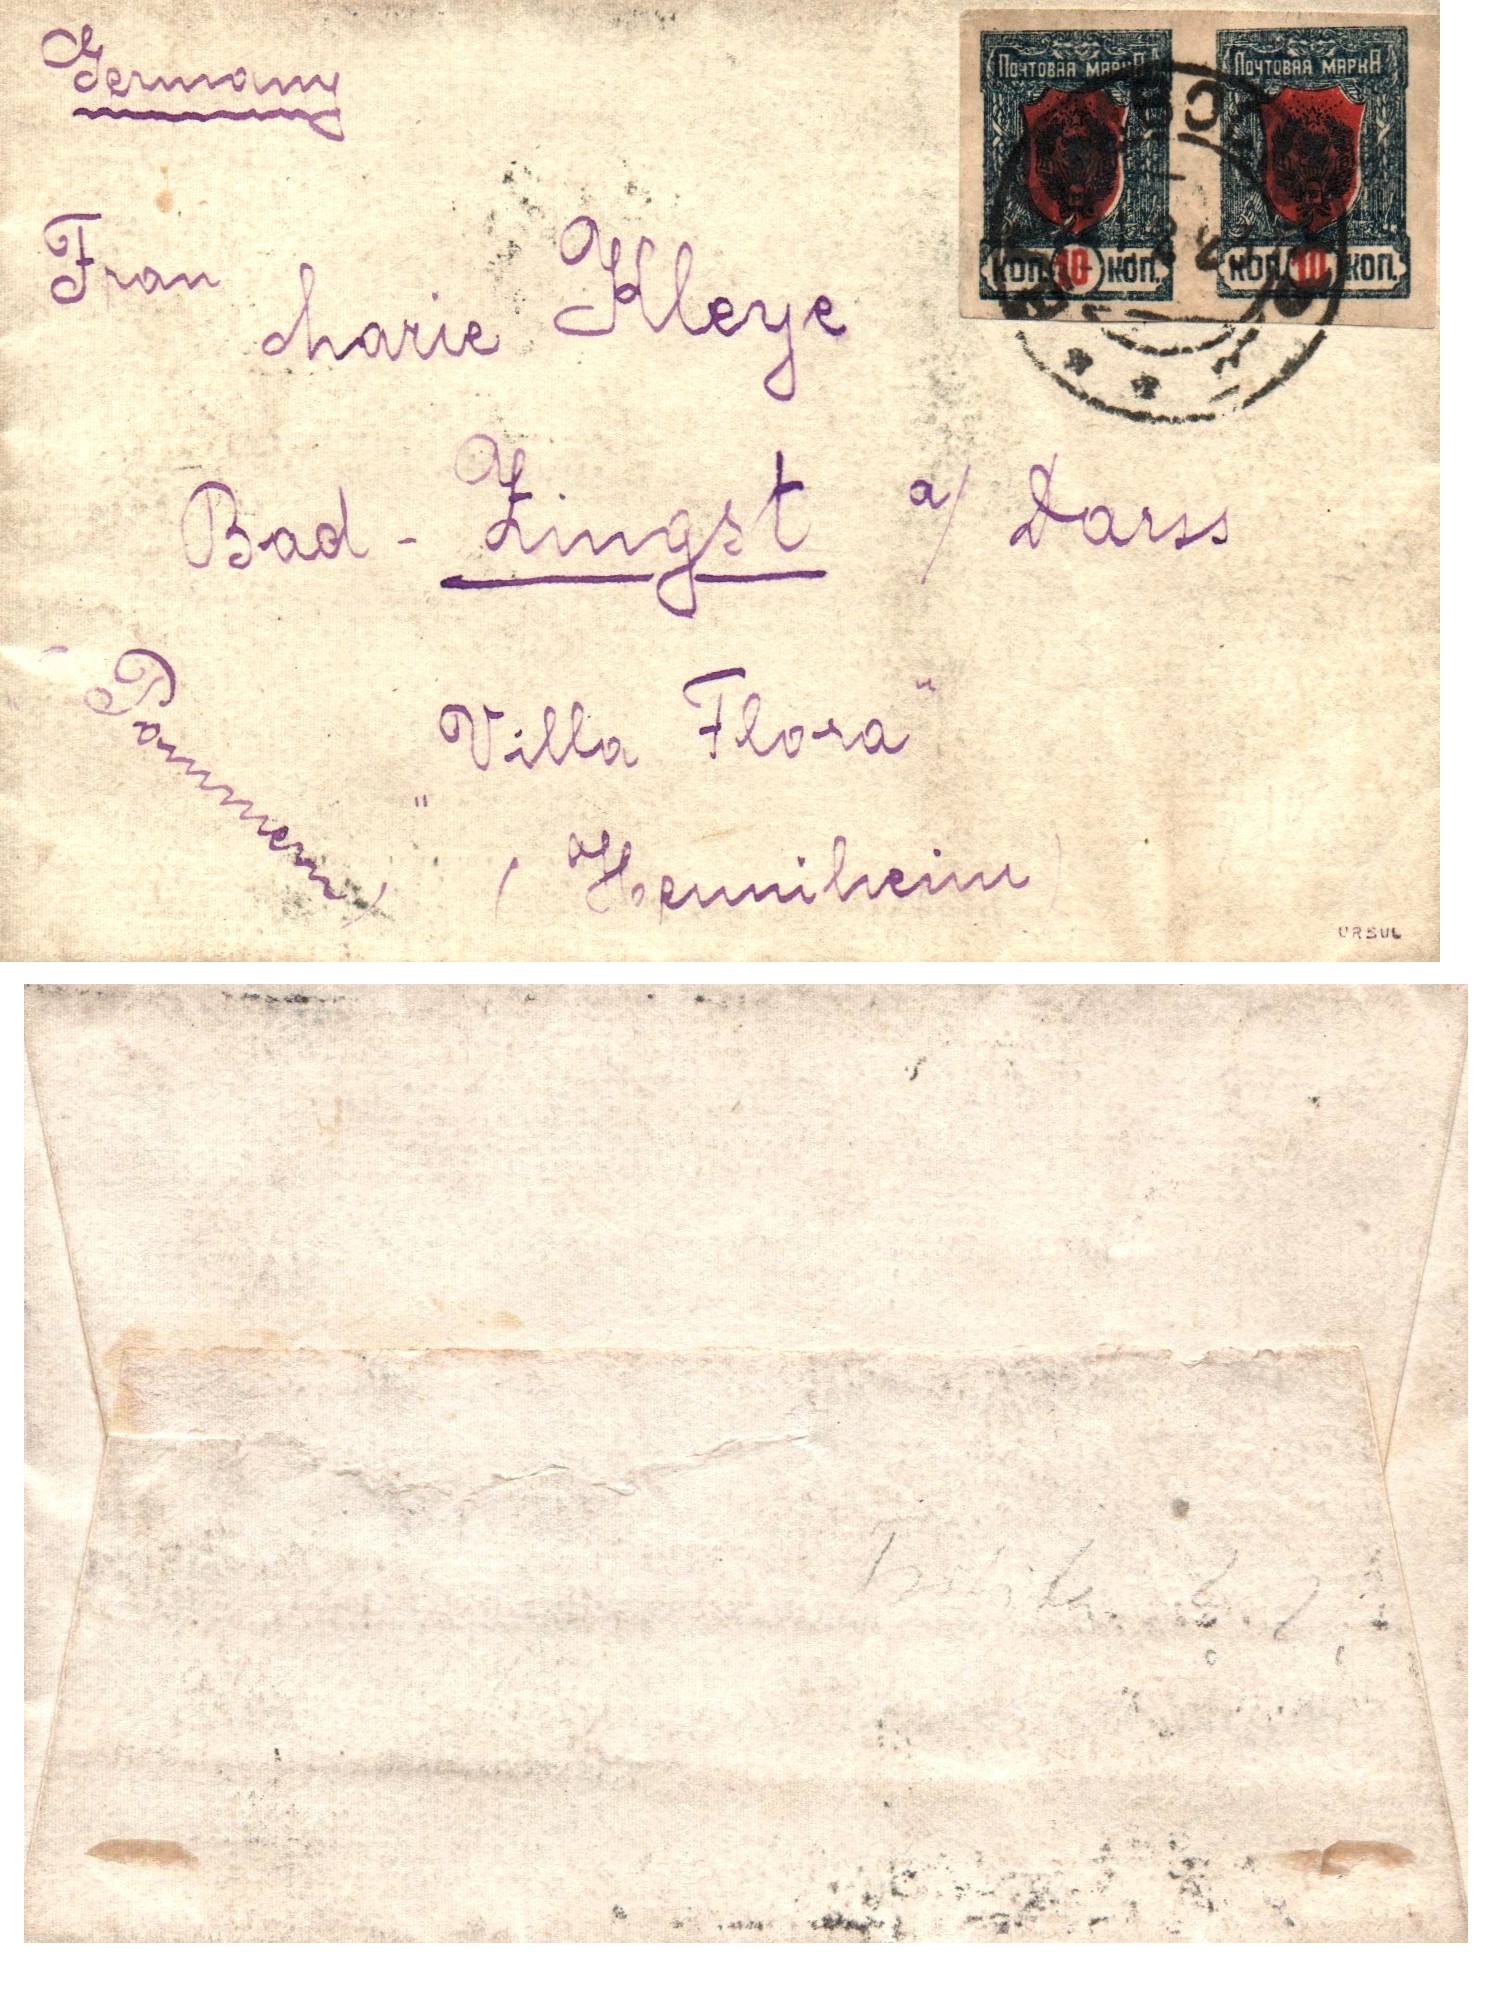 Germany
ПОЧТОВАЯ МАРКА
КОП. 10 КОП.
ПОЧТОВАЯ МАРКА
КОП. 10 КОП.
Frau
Marie Kleye
Bad - Zingst a/ Darss
Pommern)
"Villa Flora"
(Henniheim)
URSUL